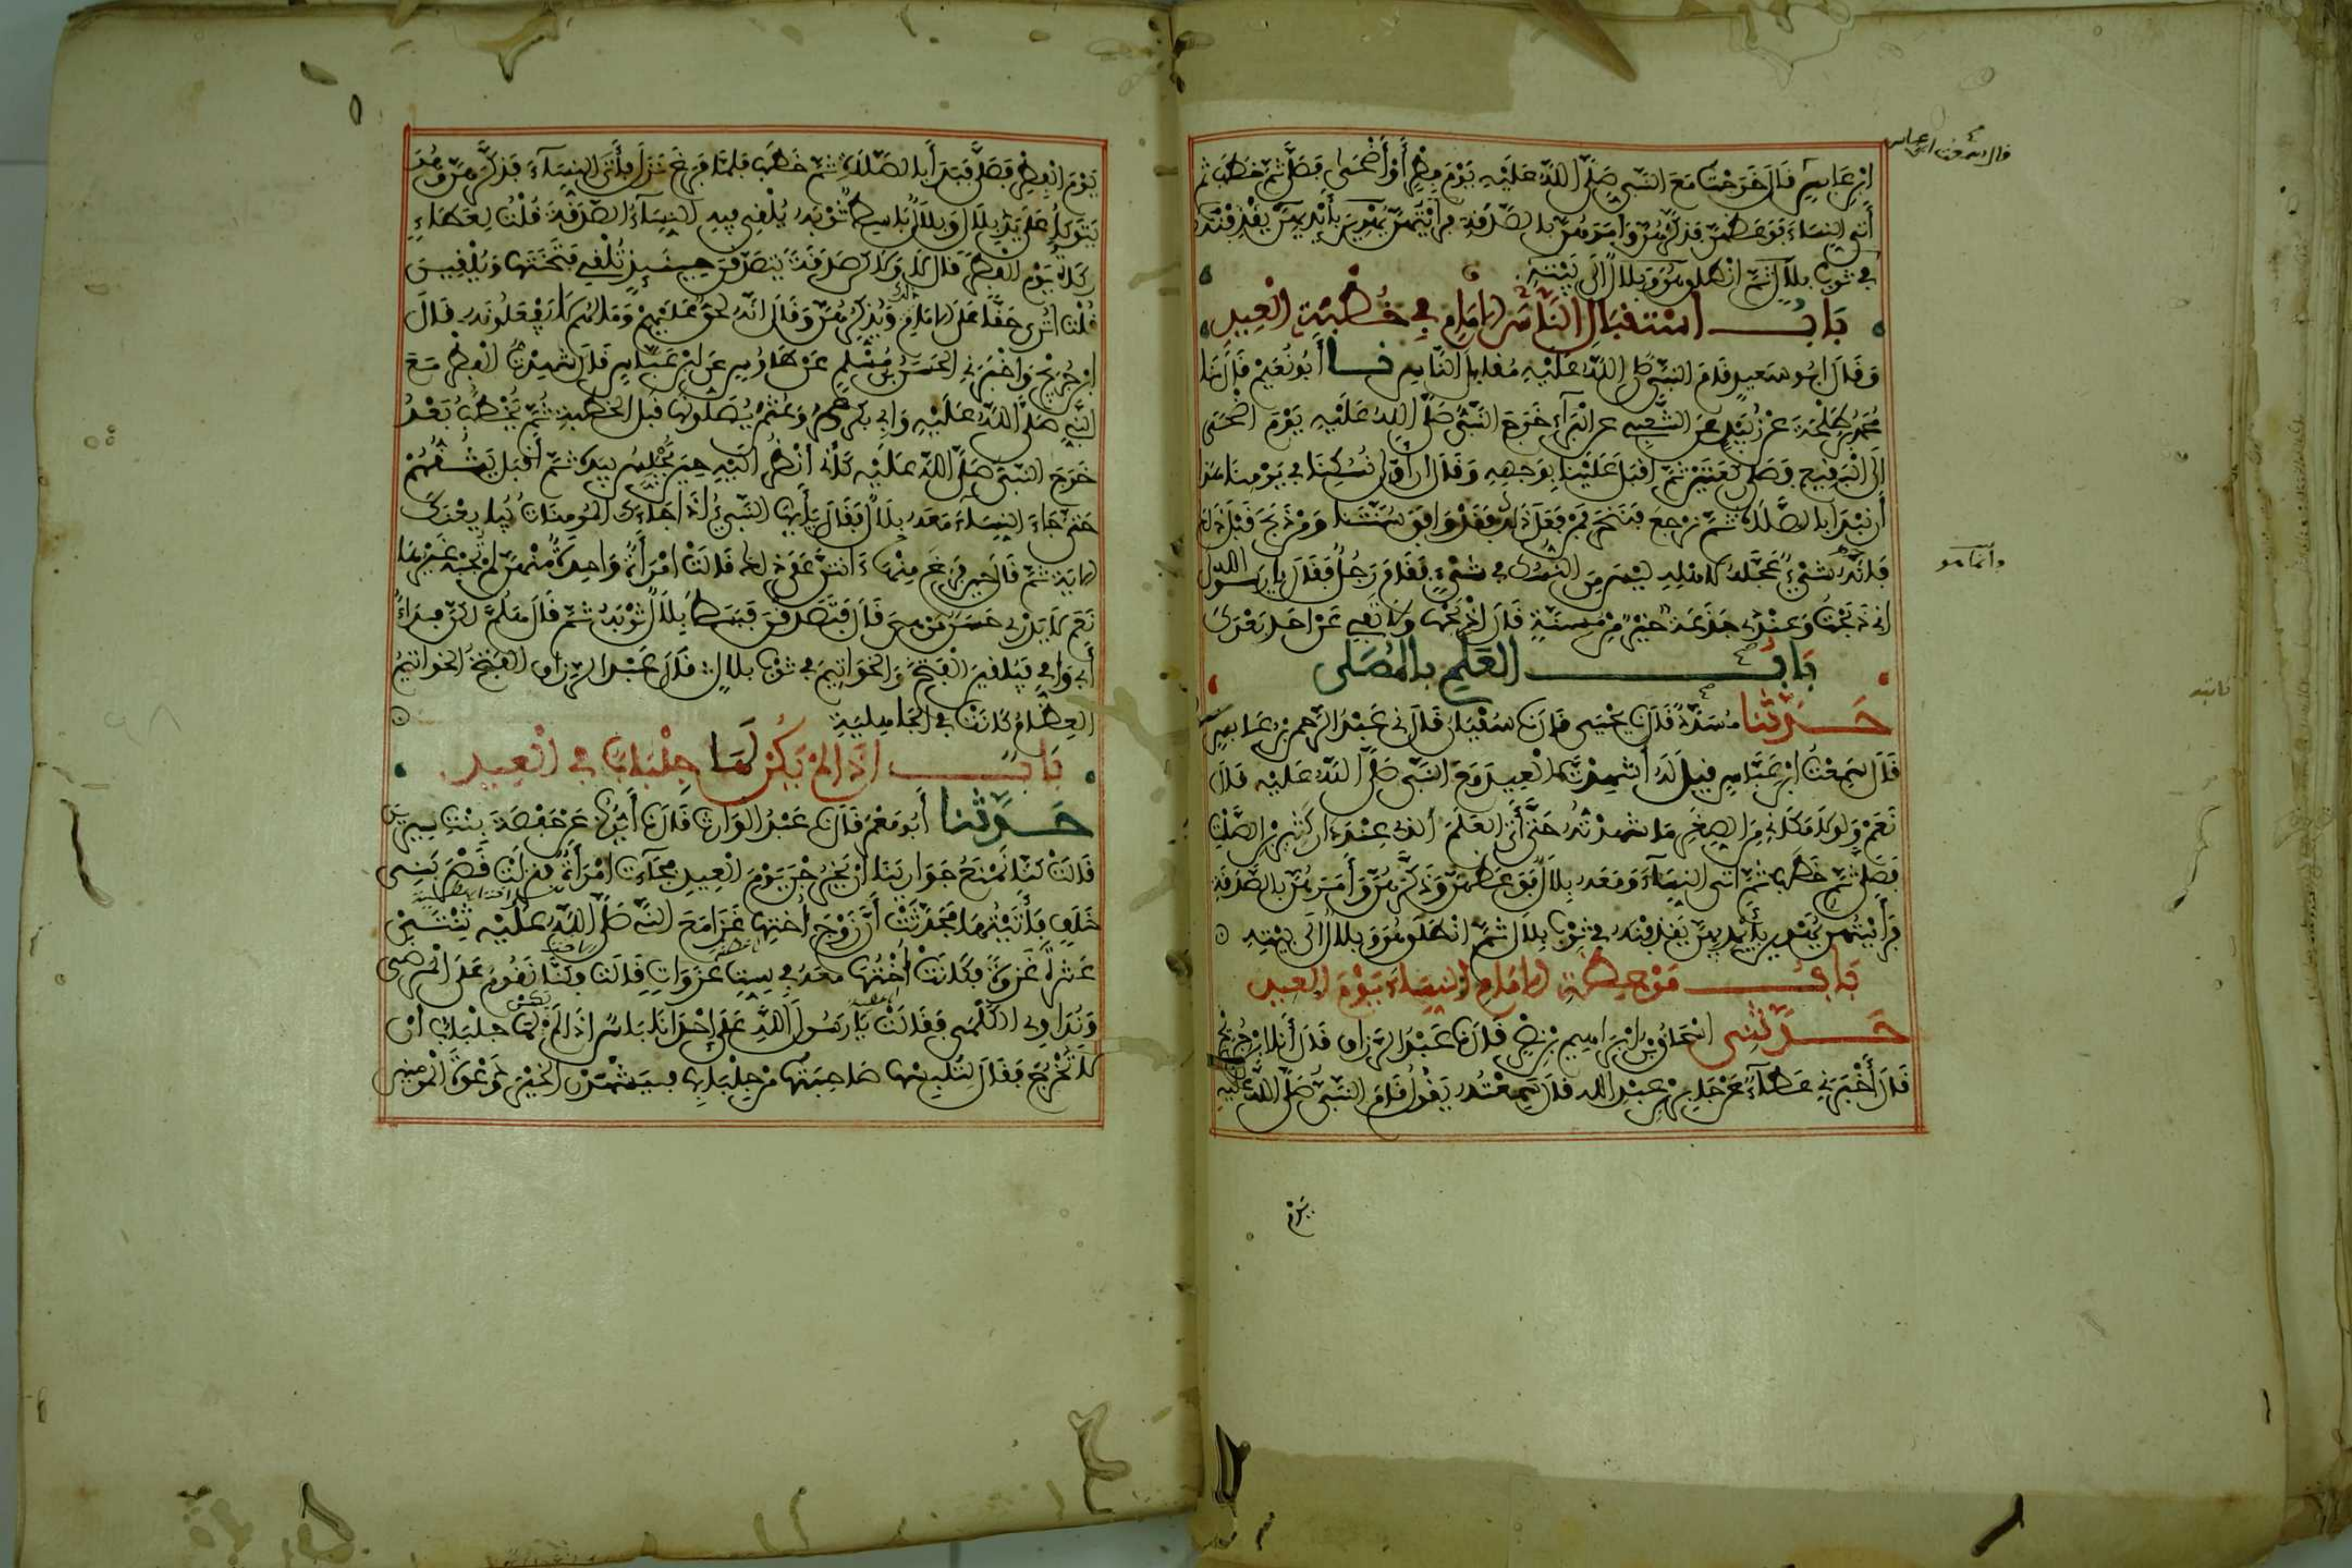 ابن عباس قال خرجت مع النبي صلى الله عليه يوم فطر أو أضحى فصلى ثم خطب ثم
أتى النساء فوعظهن فذكرهن وأمرهن بالصدقة فرأيتهن يهوين بأيديهن يقذفنه
في ثوب بلال ثم انطلق هو وبلال الى بيته
باب استقبال الناس الامام في خطبة العيد
وقال ابو سعيد قام النبي صلى الله عليه مقابل الناس نا أبو نعيم قال نا
محمد بن طلحة عن زبيد عن الشعبي عن البراء خرج النبي صلى الله عليه يوم اضحى
الى البقيع فصلى ركعتين ثم اقبل علينا بوجهه وقال ان أول نسكنا في يومنا هذا
أن نبدأ بالصلاة ثم نرجع فننحر فمن فعل ذلك فقد وافق سنتنا ومن ذبح قبل ذلك
فانه شيء عجله لاهله ليس من النسك في شيء فقام رجل فقال يا رسول الله
اني ذبحت وعندي جذعة خير من مسنة قال اذبحها ولا تفي عن احد بعدك
باب العلم بالمصلى
حدثنا مسدد قال نا يحيى قال نا سفيان قال ني عبد الرحمن بن عابس
قال سمعت ابن عباس قيل له أشهدت العيد مع النبي صلى الله عليه قال
نعم ولولا مكاني من الصغر ما شهدته حتى أتى العلم الذي عند دار كثير بن الصلت
فصلى ثم خطب ثم أتى النساء ومعه بلال فوعظهن وذكرهن وأمرهن بالصدقة
فرأيتهن يهوين بأيديهن يقذفنه في ثوب بلال ثم انطلق هو وبلال الى بيته
باب موعظة الامام النساء يوم العيد
حدثني اسحاق بن ابراهيم بن نصر قال نا عبد الرزاق قال أنا ابن جريج
قال أخبرني عطاء عن جابر بن عبد الله قال سمعته يقول قام النبي صلى الله عليه
قال سمعت ابن عباس
وانما هو
يوم
يوم الفطر فصلى فبدأ بالصلاة ثم خطب فلما فرغ نزل فأتى النساء فذكرهن وهو
يتوكأ على يد بلال وبلال باسط ثوبه يلقي فيه النساء الصدقة قلت لعطاء
زكاة يوم الفطر قال لا ولكن صدقة يتصدقن حينئذ تلقي فتختها ويلقين
قلت أترى حقا على الامام ذلك ويذكرهن قال انه لحق عليهم وما لهم لا يفعلونه قال
ابن جريج وأخبرني الحسن بن مسلم عن طاوس عن ابن عباس قال شهدت الفطر مع
النبي صلى الله عليه وأبي بكر وعمر وعثمن يصلونها قبل الخطبة ثم يخطب بعد
خرج النبي صلى الله عليه كأني أنظر اليه حين يجلس بيده ثم أقبل يشقهم
حتى جاء النساء معه بلال فقال يأيها النبي اذا جاءك المومنات يبايعنك
الاية ثم قال حين فرغ منها ءانتن على ذلك قالت امرأة واحدة منهن لم يجبه غيرها
نعم لا يدري حسن من هي قال فتصدقن فبسط بلال ثوبه ثم قال هلم لكن فداء
أبي وأمي فيلقين الفتخ والخواتيم في ثوب بلال قال عبد الرزاق الفتخ الخواتيم
العظام كانت في الجاهلية
باب اذا لم يكن لها جلباب في العيد
حدثنا أبو معمر قال نا عبد الوارث قال نا أيوب عن حفصة بنت سيرين
قالت كنا نمنع جوارينا أن يخرجن يوم العيد فجاءت امرأة فنزلت قصر بني
خلف فأتيتها فحدثت أن زوج أختها غزا مع النبي صلى الله عليه ثنتي
عشرة غزوة فكانت أختها معه في ست غزوات قالت فكنا نقوم على المرضى
ونداوي الكلمى فقالت يا رسول الله على احدانا باس اذا لم يكن لها جلباب أن
لا تخرج فقال لتلبسها صاحبتها من جلبابها فيشهدن الخير ودعوة المومنين